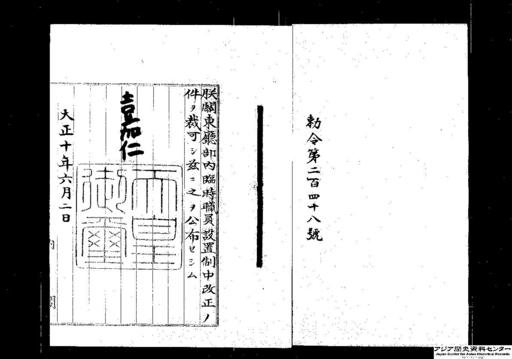 勅令第二百四十八號
朕關東廳部内臨時職員設置制中改正ノ
件ヲ裁可シ茲ニ之ヲ公布セシム
嘉仁
天皇御璽
大正十年六月二日
内閣
アジア歴史資料センター
Japan Center for Asian Historical Records